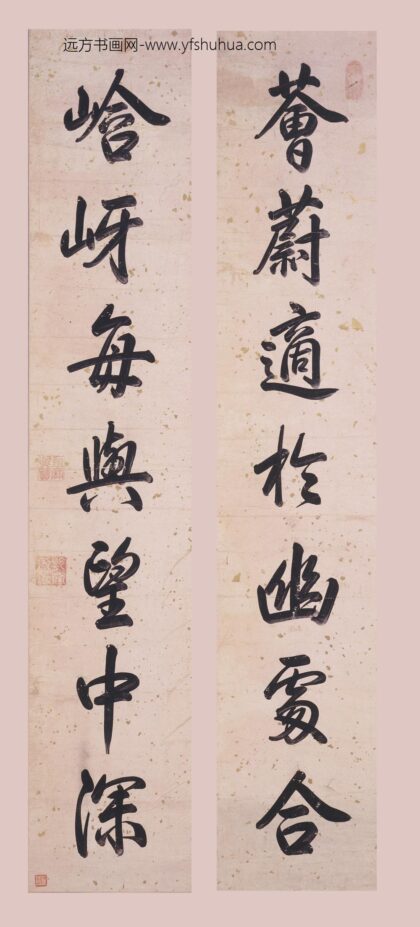 远方书画网-www.yfshuhua.com
薈蔚適於幽處合
峆岈每與望中深